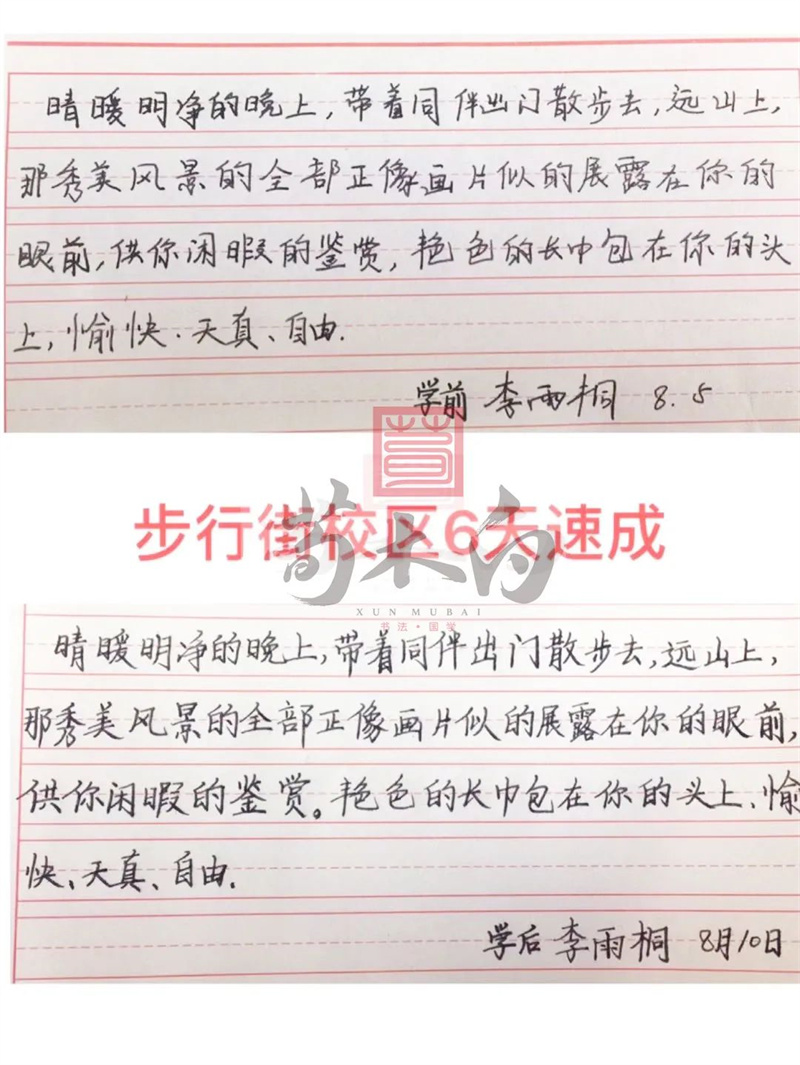 晴暖明净的晚上,带着同伴出门散步去,远山上,
那秀美风景的全部正像画片似的展露在你的
眼前,供你闲暇的鉴赏,艳色的长巾包在你的头
上,愉快、天真、自由.
学前 李雨桐 8.5
步行街校区6天速成
荀木白
XUN MUBAI
书法·国学
晴暖明净的晚上,带着同伴出门散步去,远山上,
那秀美风景的全部正像画片似的展露在你的眼前,
供你闲暇的鉴赏。艳色的长巾包在你的头上、愉
快、天真、自由.
学后 李雨桐 8月10日